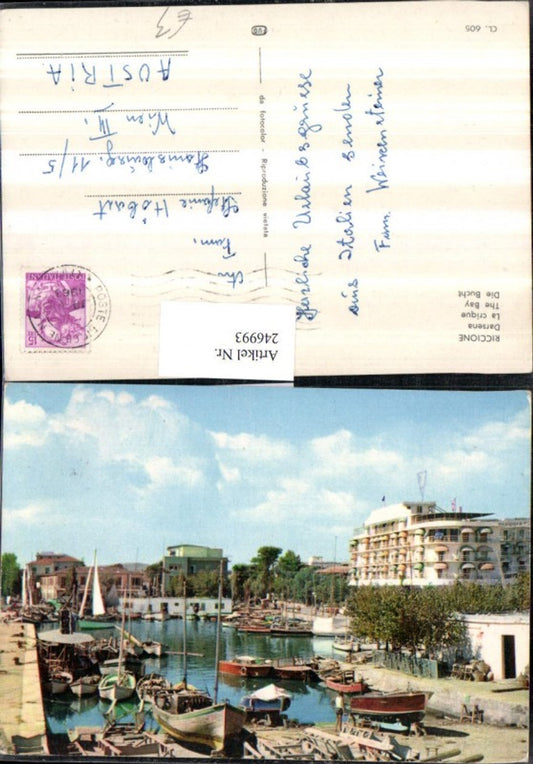 RICCIONE
Darsena
La crique
The Bay
Die Bucht
Herzliche Urlaubsgrüsse
aus Italien senden
Fam. Weixensteiner
da fotocolor - Riproduzione vietata
CL. 605
Fam.
Stefanie Höbart
11/5
Wien III.
AUSTRIA
POSTE
1963
15
Artikel Nr.
246993